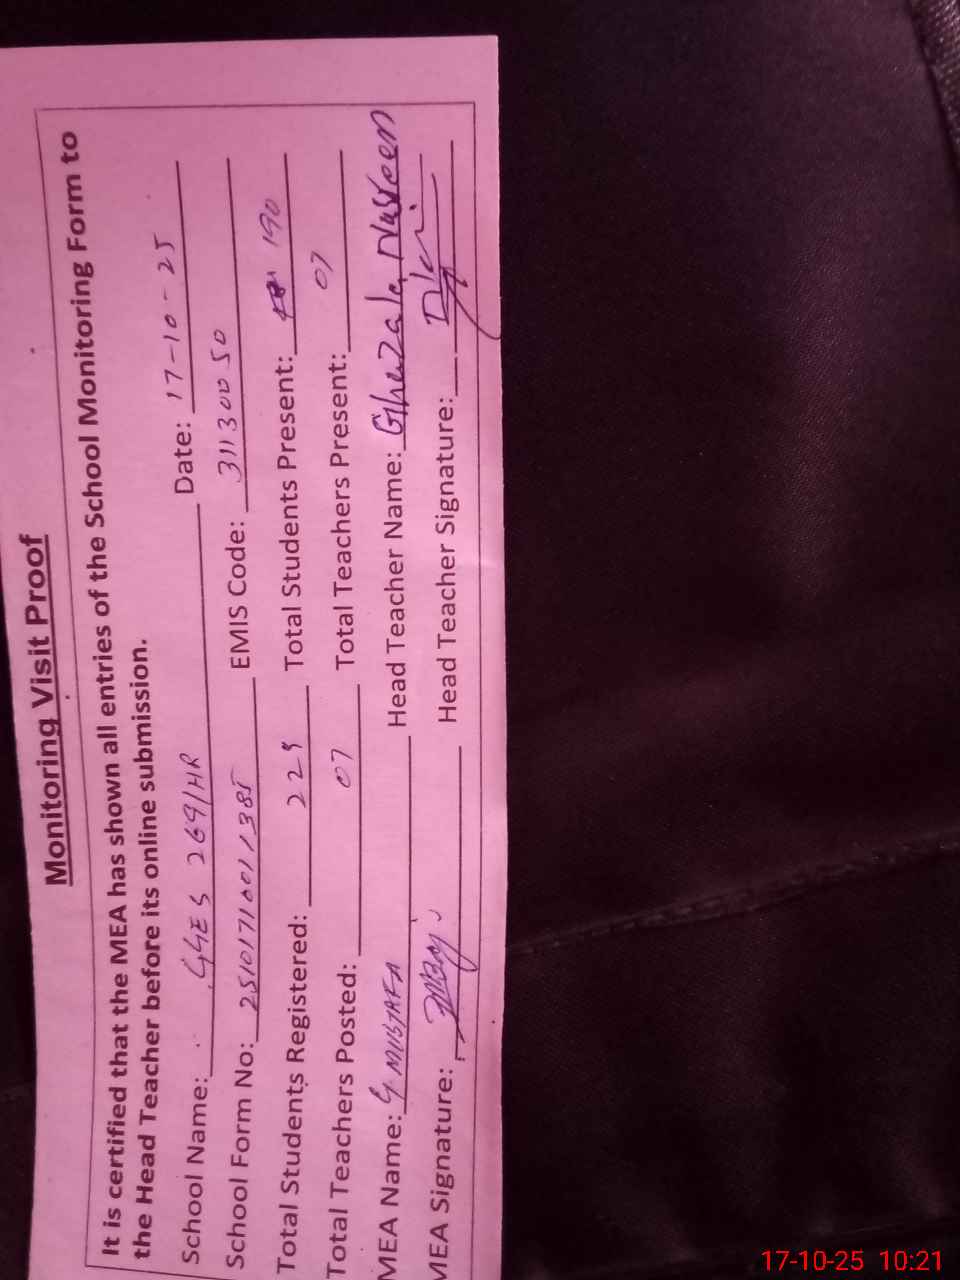 Monitoring Visit Proof
It is certified that the MEA has shown all entries of the School Monitoring Form to
the Head Teacher before its online submission.
School Name: GGES 269/HR Date: 17-10-25
School Form No: 25101710011385 EMIS Code: 31130050
Total Students Registered: 229 Total Students Present: 190
Total Teachers Posted: 07 Total Teachers Present: 07
MEA Name: G MUSTAFA Head Teacher Name: Ghazala Nasreen
MEA Signature: Head Teacher Signature:
17-10-25 10:21